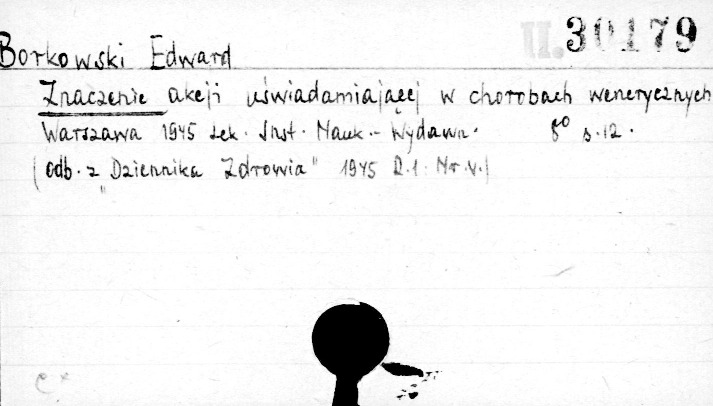 II. 30179
Borkowski Edward
Znaczenie akcji uświadamiającej w chorobach wenerycznych
Warszawa 1945 Lek. Inst. Nauk.-Wydawn. 8° s. 12.
(odb. z "Dziennika Zdrowia" 1945 R. 1. Nr. V.)